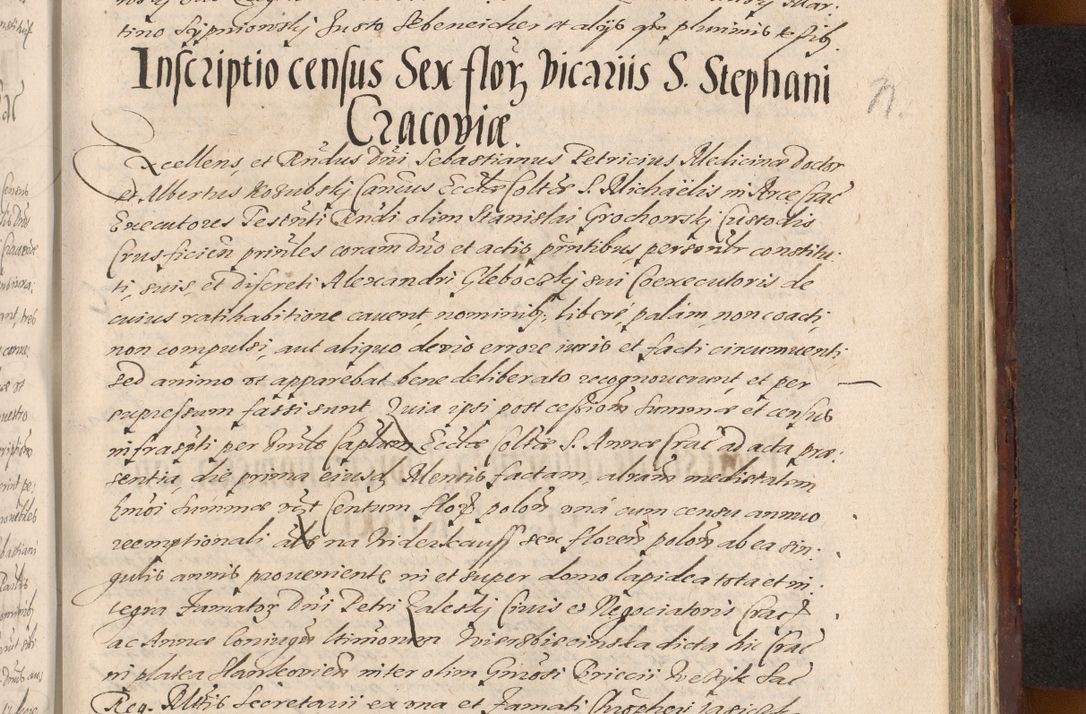 tino Scipniowskÿ Justo Ebeneicher et alÿs q̃m plurimis t̃ fib.
Inscriptio census Sex florꝫ vicariis S. Stephani
Cracoviæ.
Excellens, et Rñdus Dñi Sebastianus Petricius Medicinæ Doctor
et Albertus Rozubskÿ Cañcus Ecctæ Coltæ S. Michaëlis in Arce Crac̃
Executores Testñti Rñdi olim Stanislai Grochowskÿ Custodis
Crusficieñ prinĩles coram Dño et actis p̃ntibus personl̃r constitu:
ti, suis, et discreti Alexandri Glebockÿ sui Coexecutoris de
cuius ratihabitione cavent, nominibꝫ, liberè, palàm, non coacti,
non compulsi, aut aliquo devio errore iuris et facti circumventi
sed animo ut apparebat bene deliberato recognoverunt, et per
expressum fassi sunt Quia ipsi post cessionem summæ et census
infrascr̃pti per Vniũle Capl̃um Ecctæ Coltæ S. Annæ Crac̃ ad acta præ:
sentia, die prima eiusdꝫ Mensis factam, alterãm medietatem
hmõi summæ vzt Centum florꝫ poloñ unà cum censu annuo
reemptionali als na Widerkauff sex floreñ poloñ ab ea sin:
gulis annis proveniente in et super domo lapidea tota et in:
tegra Famatorꝫ Dñi Petri Zaleskÿ Civis et Negociatoris Crac̃
ac Annæ Coniugum ltimorum Wierzbiecinska dicta hic Crac̃
in platea Slawkovieñ inter olim Gnrosi Briccii Weÿk Sac
Reg. Mttis Secretarii ex una et Famati Chrõpheri